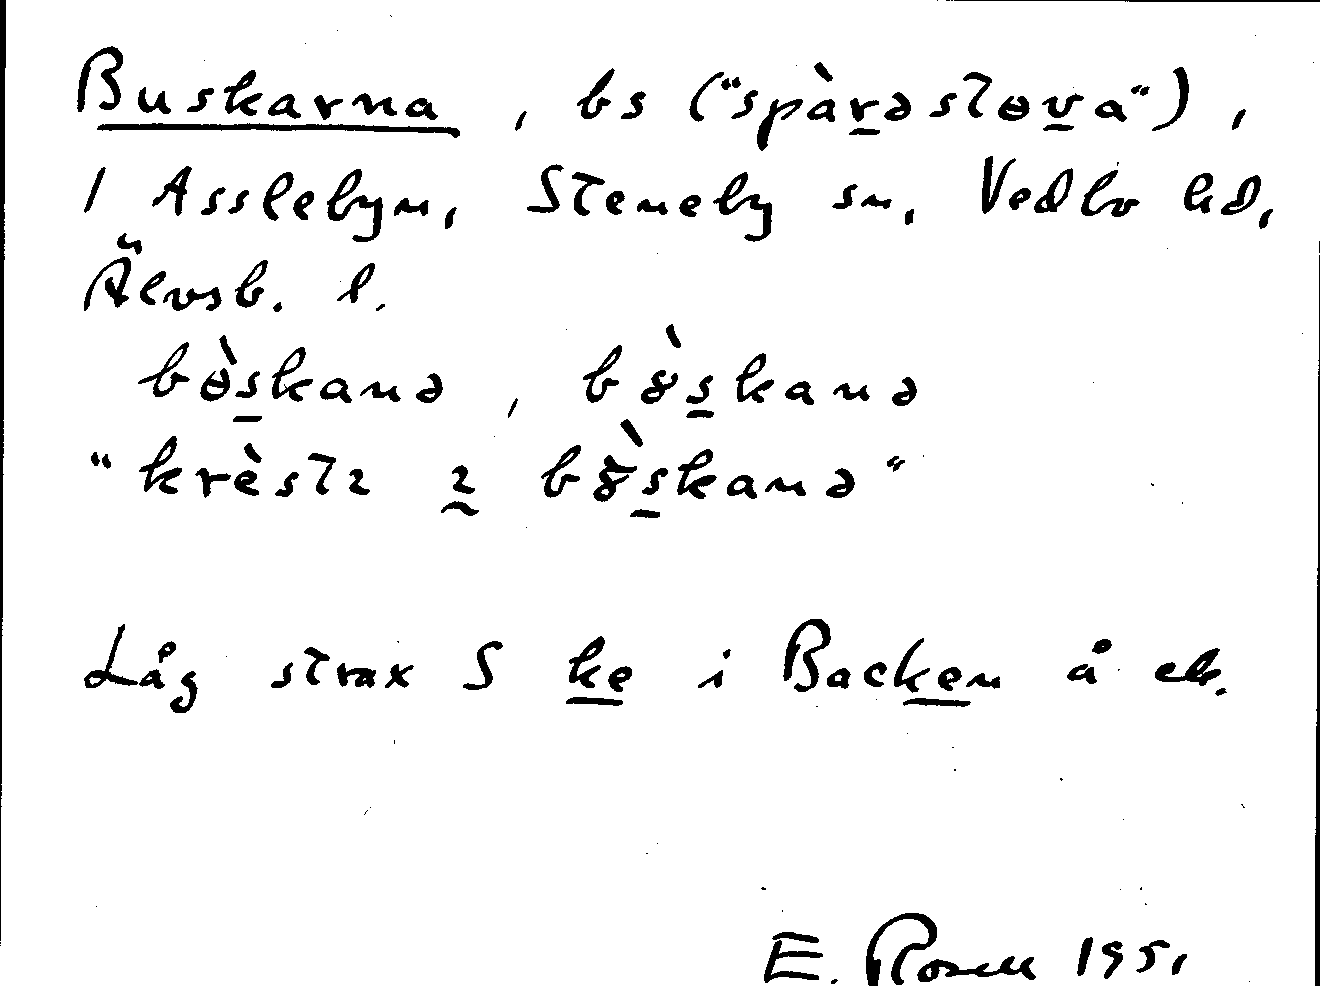 Buskarna, bs ("spàrəstɵva"),
1 Asslebyn, Steneby sn, Vedbo hd,
Älvsb. l.
bɵ̀skanə, bȣ̀skanə
"krèstɩ ɩ bȣ̀skanə"
Låg strax S ke i Backen å eb.
E. Rosell 1951